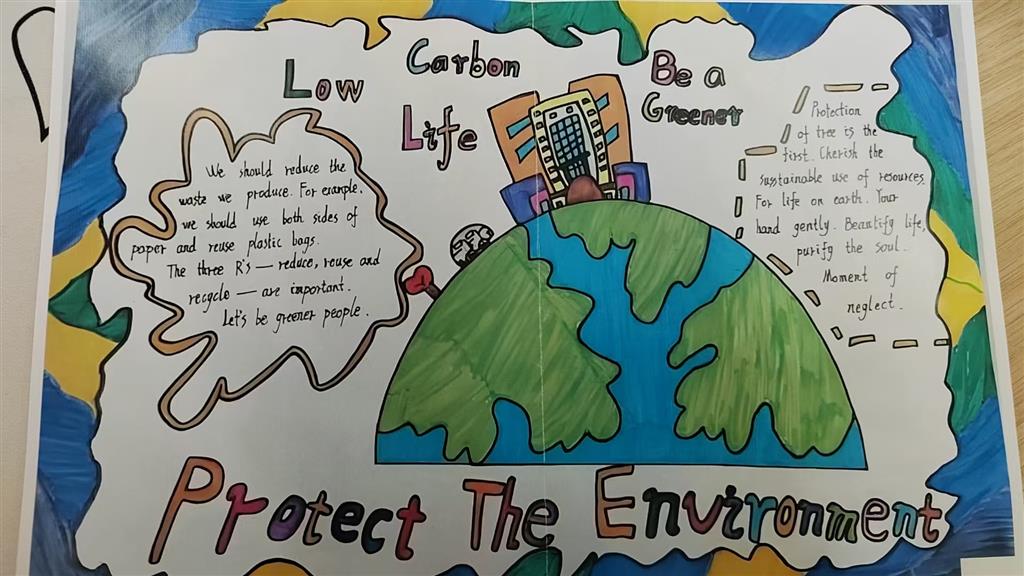 Low Carbon Life
Be a Greener
We should reduce the
waste we produce. For example,
we should use both sides of
paper and reuse plastic bags.
The three R's — reduce, reuse and
recycle — are important.
Let's be greener people.
Protection
of tree is the
first. Cherish the
susstainable use of resources.
For life on earth. Your
hand gently. Beautify life,
purify the soul.
Moment of
neglect.
Protect The Environment